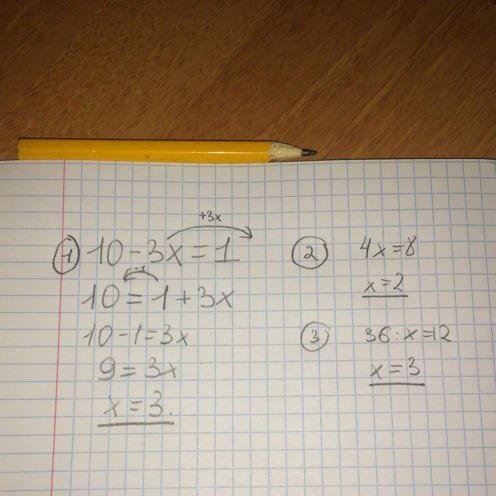 +3x
1 10-3x=1
-1
10=1+3x
10-1=3x
9=3x
x=3.
2 4x=8
x=2
3 36:x=12
x=3